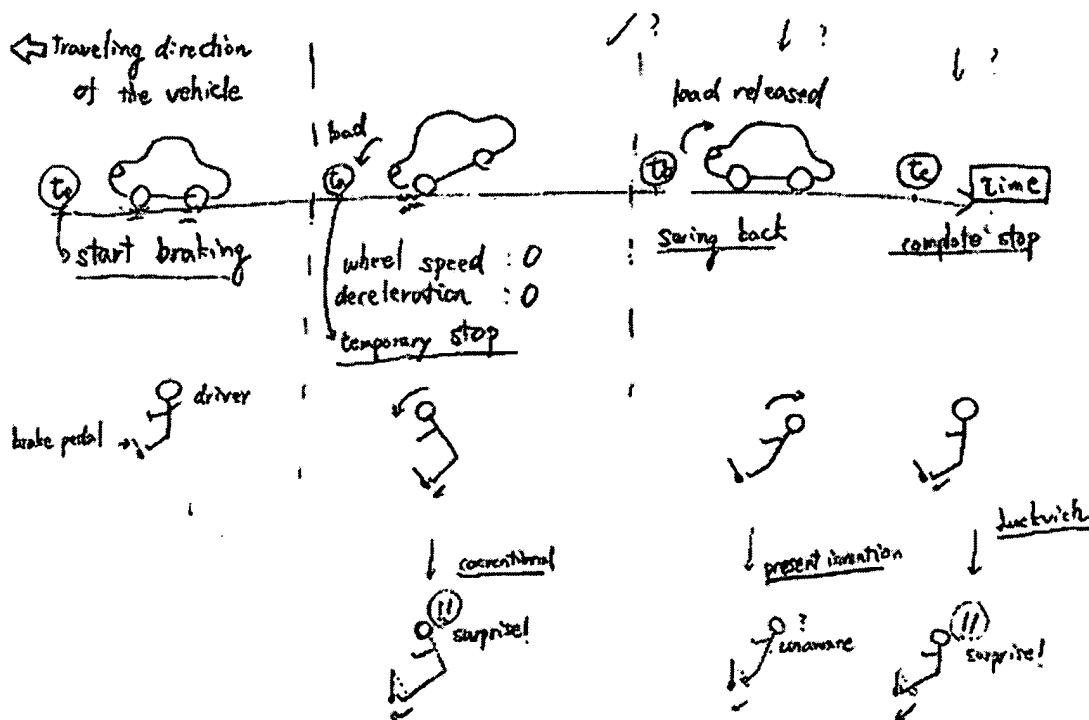 traveling direction
of the vehicle
?
?
?
load released
t0
ta
tb
tc
time
start braking
wheel speed : 0
deceleration : 0
temporary stop
swing back
complete stop
driver
brake pedal
conventional
!!
surprise!
present invention
?
unaware
!!
surprise!